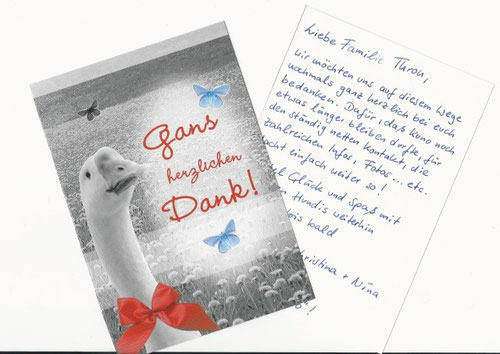 Gans
herzlichen
Dank!
Liebe Familie Thron,
wir möchten uns auf diesem Wege
nochmals ganz herzlich bei euch
bedanken. Dafür, daß Kuno noch
etwas länger bleiben durfte, für
den ständig netten Kontakt, die
zahlreichen Infos, Fotos... etc.
einfach weiter so!
Glück und Spaß mit
Hundis weiterhin
bald
Christina + Nina